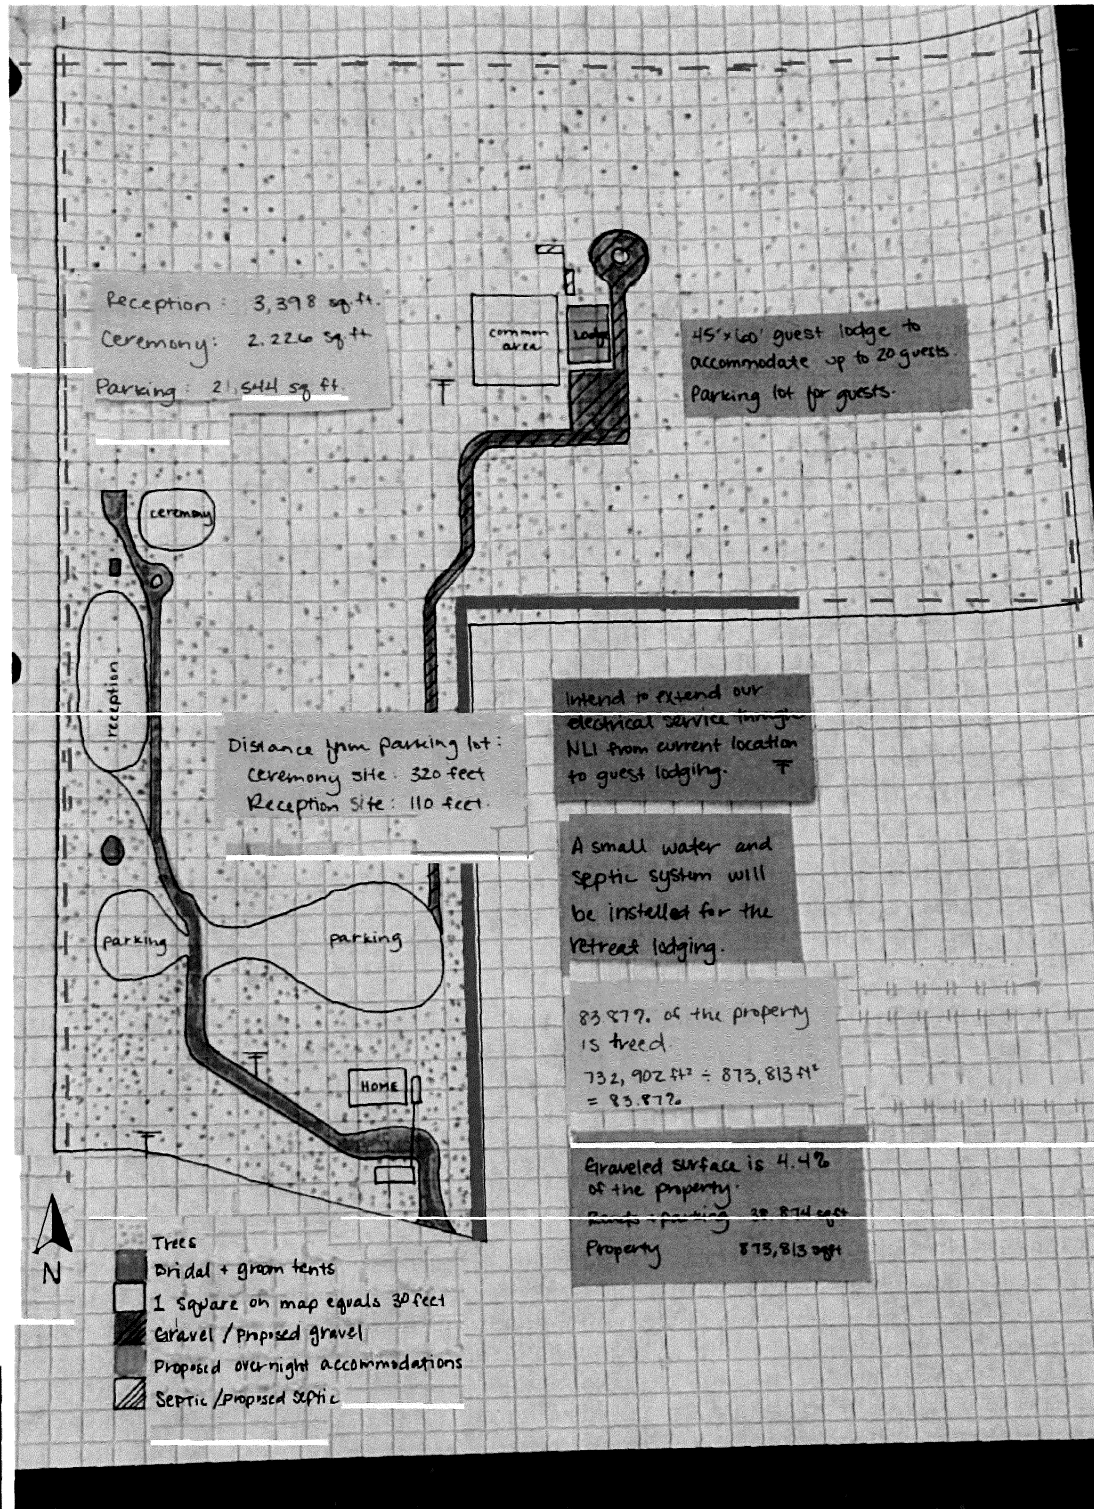 Reception: 3,398 sq.ft.
Ceremony: 2.226 sq.ft
Parking: 21,544 sq ft.
common
area
Lodge
45'x60' guest lodge to
accommodate up to 20 guests.
Parking lot for guests.
ceremony
reception
Distance from parking lot:
Ceremony site: 320 feet
Reception site: 110 feet.
Intend to extend our
electrical service through
NLI from current location
to guest lodging.
A small water and
septic system will
be installed for the
retreat lodging.
parking
parking
83.87% of the property
is treed.
732,902 ft² ÷ 873,813 ft²
= 83.87%
HOME
Graveled surface is 4.4%
of the property.
Roads + parking 38,874 sqft
Property 873,813 sqft
N
Trees
Bridal + groom tents
1 square on map equals 30 feet
Gravel / Proposed gravel
Proposed overnight accommodations
Septic / Proposed septic